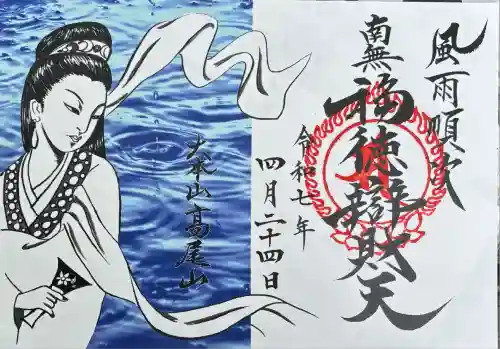 風雨順次
南無福徳辯財天
令和七年
四月二十四日
大本山高尾山